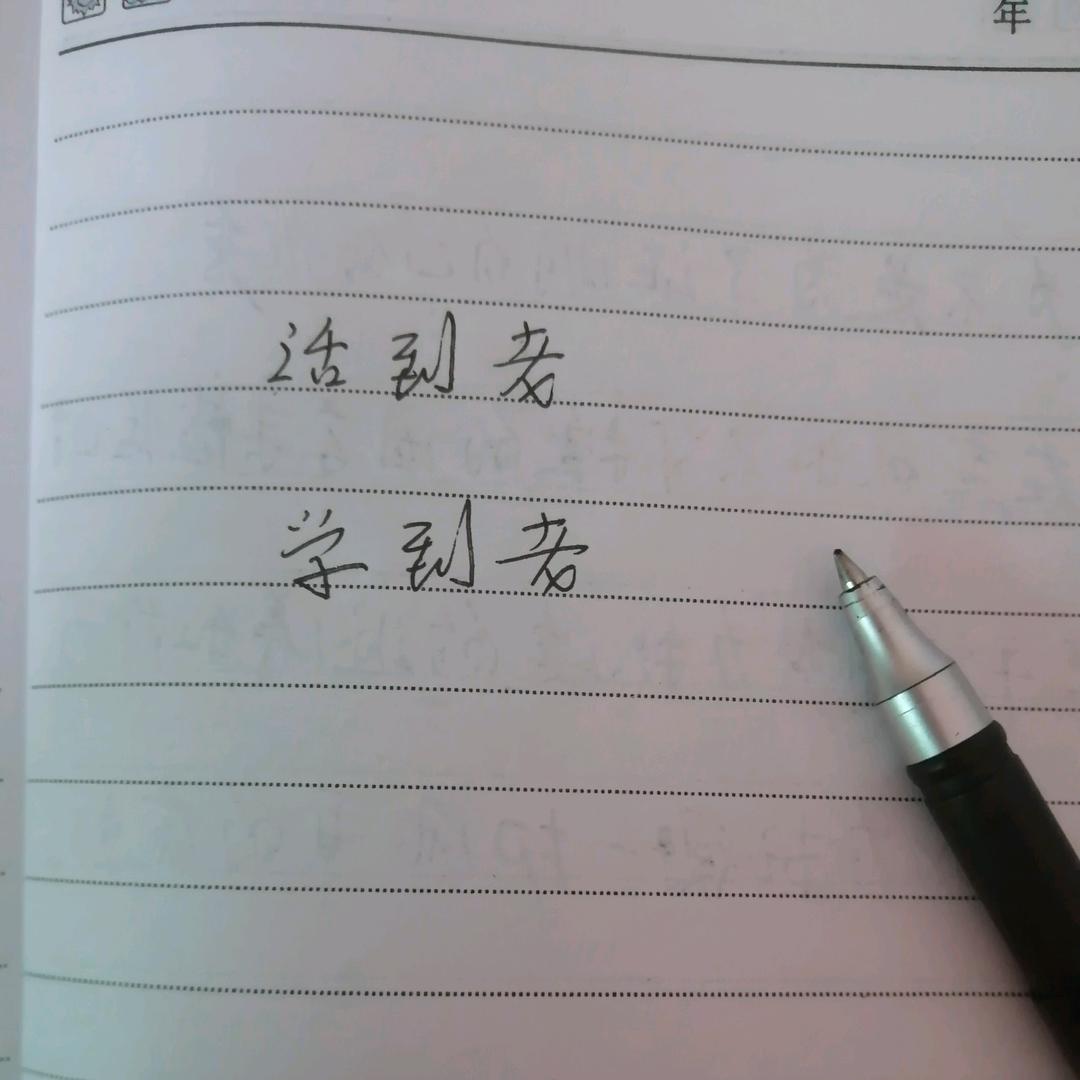 年
活到老
学到老